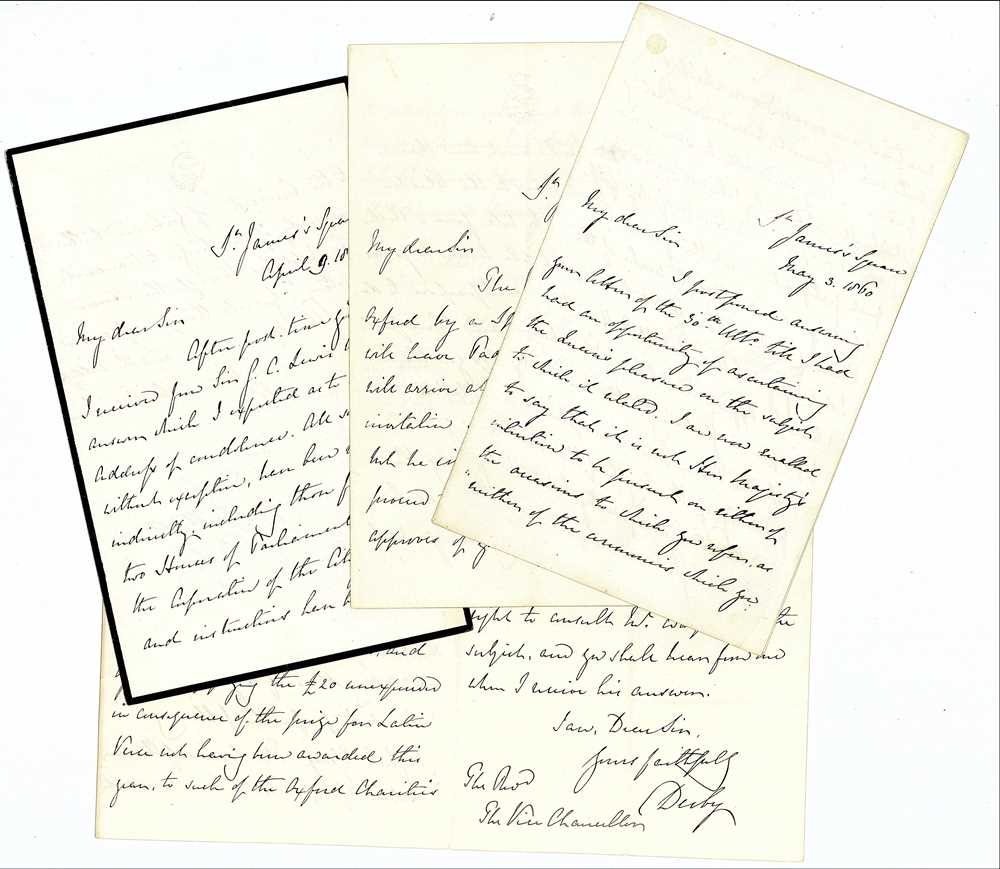 St. James's Square
April 9. 18
My dear Sir
After post-time
I received from Sir G. C. Lewis
answer which I expected as to
Address of condolence. All
without exception, have been
indirectly, including those
two Houses of Parliament
the Corporation of the City
and instructions have
St.
My dear Sir
The
Oxford by a Sp
will have
will arrive at
invitation
but he
proceed
approves of
St. James's Square
May 3. 1860
My dear Sir
I postponed answering
your letter of the 30th. Ulto. till I had
had an opportunity of ascertaining
the Queen's pleasure on the subject
to which it related. I am now enabled
to say that it is not Her Majesty's
intention to be present on either of
the occasions to which you refer, as
neither of the ceremonies which you
and
the £20 unexpended
in consequence of the prize for Latin
Verse not having been awarded this
year, to such of the Oxford Charities
right to consult Mr. the
subject, and you shall hear from me
when I receive his answer.
I am, Dear Sir,
Yours faithfully
Derby
The Revd
The Vice Chancellor